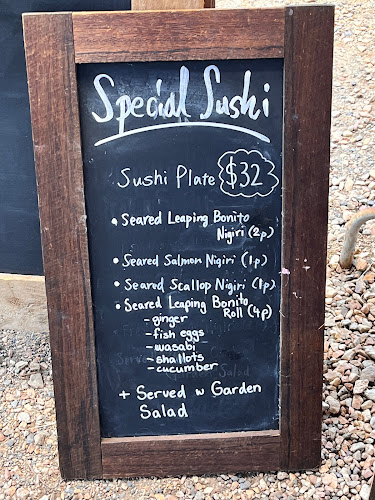 Special Sushi
Sushi Plate $32
• Seared Leaping Bonito
Nigiri (2p)
• Seared Salmon Nigiri (1p)
• Seared Scallop Nigiri (1p)
• Seared Leaping Bonito
Roll (4p)
- ginger
- fish eggs
- wasabi
- shallots
- cucumber
+ Served w Garden
Salad